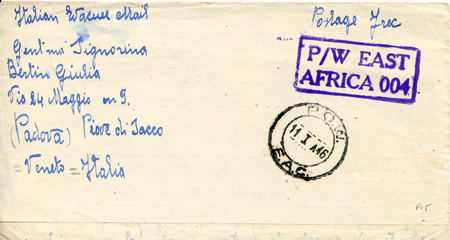 Italian Evacuee Mail
Postage Free
Gentma Signorina
Bertin Giulia
Via 24 Maggio n 9.
(Padova) Piove di Sacco
= Veneto = Italia
P/W EAST
AFRICA 004
P.O.W.
11 X 46
E.A.C.
P15